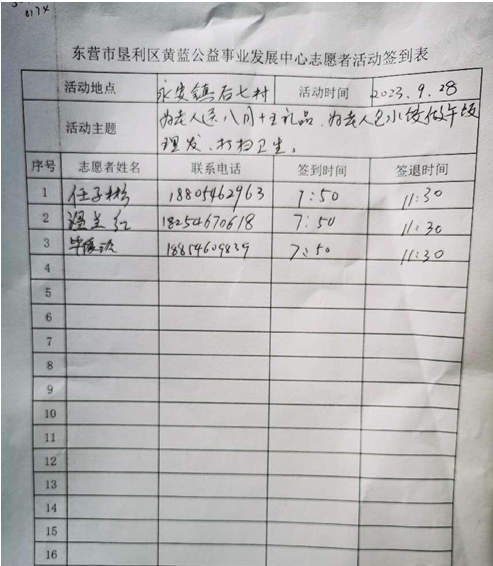 0174
东营市垦利区黄蓝公益事业发展中心志愿者活动签到表
活动地点 永安镇后七村 活动时间 2023.9.28
活动主题 为老人送八月十五礼品、为老人包水饺做午饭
理发、打扫卫生。
序号 志愿者姓名 联系电话 签到时间 签退时间
1 任子彬 18805462963 7:50 11:30
2 温兰红 18254670618 7:50 11:30
3 18854609839 7:50 11:30
4
5
6
7
8
9
10
11
12
13
14
15
16